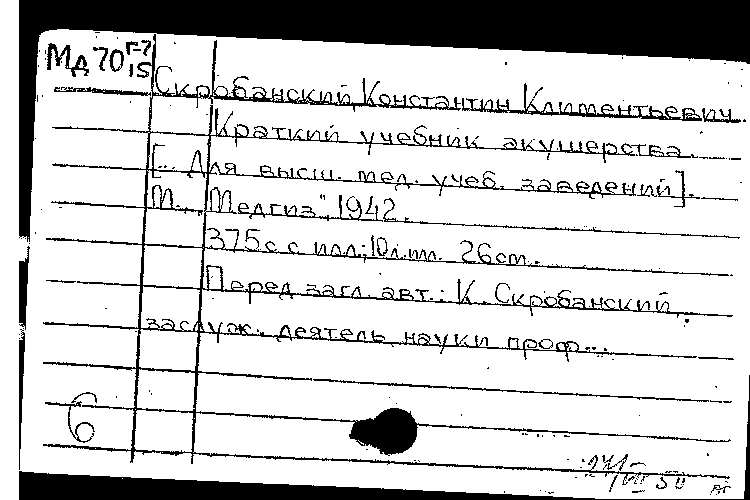 Мд 70 Г-7
15
Скробанский, Константин Климентьевич.
Краткий учебник акушерства.
[... Для высш. мед. учеб. заведений].
М., "Медгиз", 1942.
375 с. с илл.; 10 л. ил. 26 см.
Перед загл. авт.: К. Скробанский,
заслуж. деятель науки проф...
6